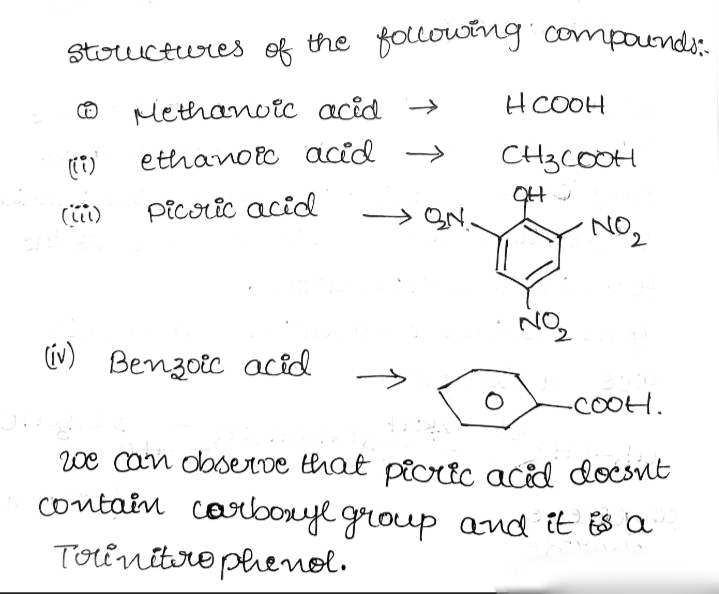 structures of the following compounds:-
(i) Methanoic acid → HCOOH
(ii) ethanoic acid → CH3COOH
(iii) picric acid → O2N OH NO2
NO2
(iv) Benzoic acid → COOH.
we can observe that picric acid doesnt
contain carboxyl group and it is a
Trinitrophenol.